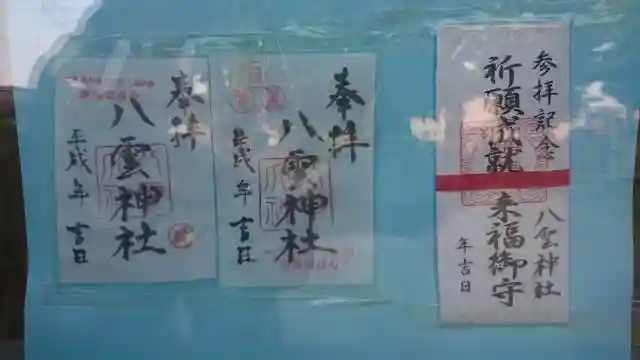 奉拝
八雲神社
平成年吉日
奉拝
八雲神社
平成年吉日
参拝記念
祈願成就 来福御守
八雲神社
年吉日